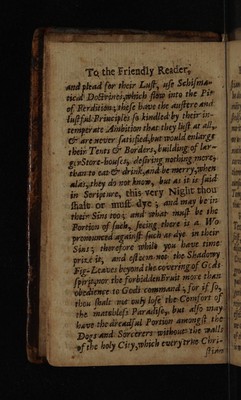 To the Friendly Reader,
and plead for their Lust, use Schisma-
tical Doctrines, which flow into the Pit
of Perdition; these have the austere and
lustful Principles so kindled by their in-
temperate Ambition that they lust at all,
& are never satisfied, but would enlarge
their Tents & Borders, building of lar-
ger Store-houses, desiring nothing more,
than to eat & drink, and be merry, when
alas, they do not know, but as it is said
in Scripture, this very Night thou
shalt or must dye; and may be in
their Sins too; and what must be the
Portion of such, seeing there is a Wo
pronounced against such as dye in their
Sins; therefore while you have time
prize it, and esteem not the Shadowy
Fig-Leaves beyond the covering of Gods
spirit, nor the forbidden Fruit more than
obedience to Gods command; for if so,
thou shalt not only lose the Comfort of
the matchless Paradise, but also may
have the dreadful Portion amongst the
Dogs and Sorcerers without the walls
of the holy City, which every true Chri-
stian